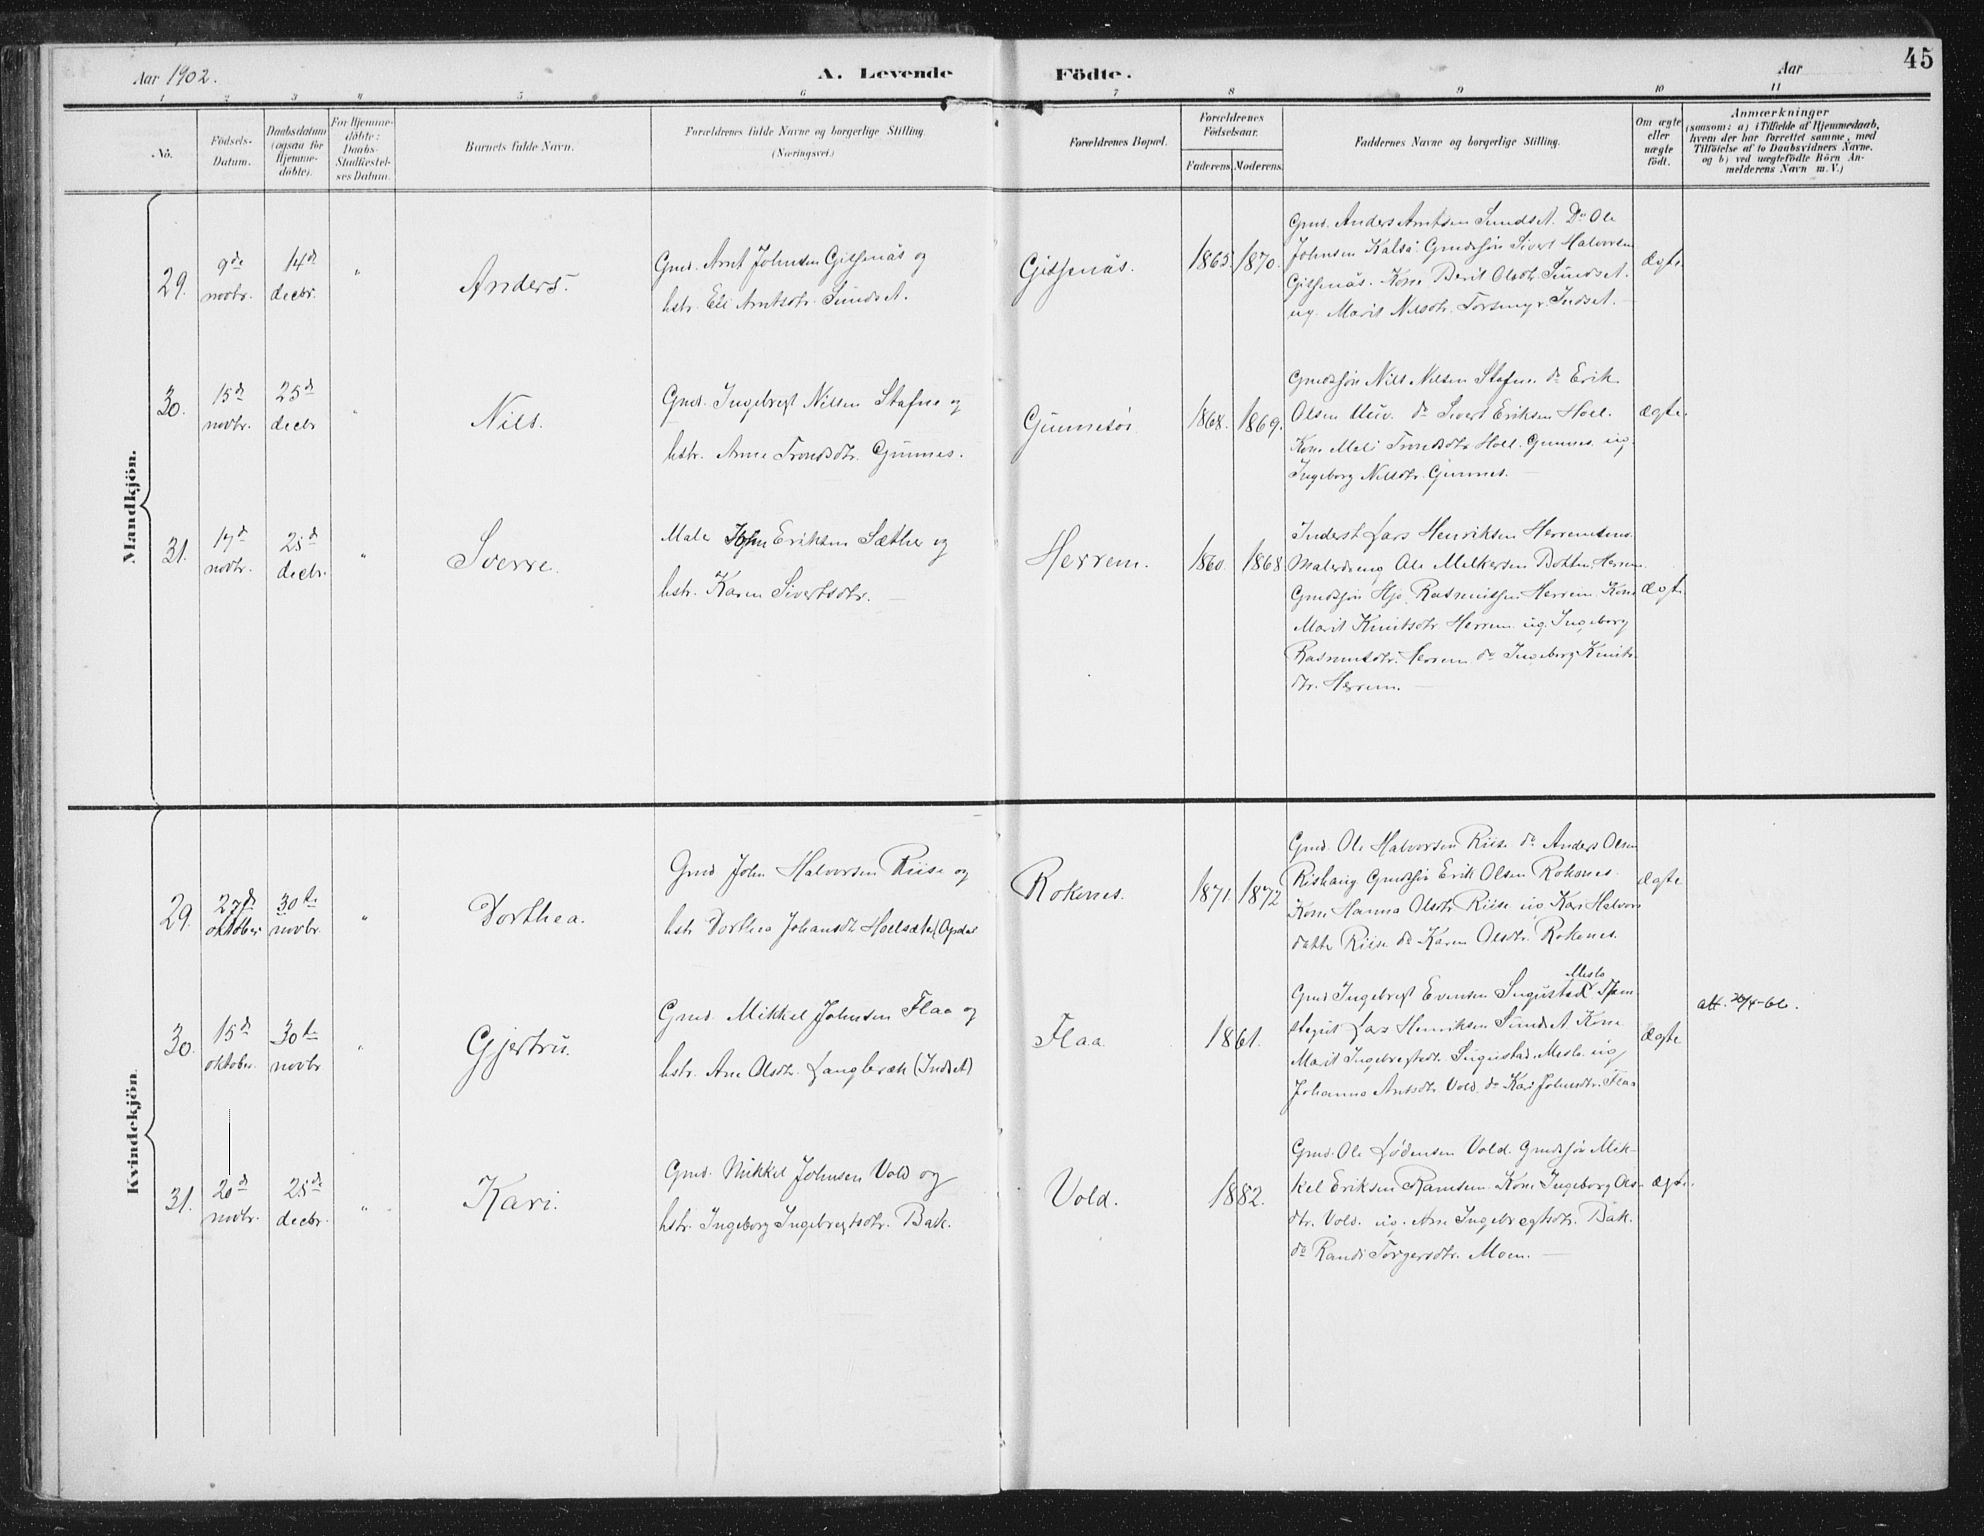 Aar 1902.
A. Levende
Födte.
Aar
45
1 2 3 4 5 6 7 8 9 10 11
Nô.
Födsels-
Datum.
Daabsdatum
(ogsaa for
Hjemme-
döbte).
For Hjemme-
döbte:
Daabs-
Stadfæstel-
ses Datum.
Barnets fulde Navn.
Forældrenes fulde Navne og borgerlige Stilling.
(Næringsvei.)
Forældrenes Bopæl.
Forældrenes
Födselsaar.
Faderens Moderens.
Faddernes Navne og borgerlige Stilling.
Om ægte
eller
uægte
födt.
Anmærkninger
(saasom: a) i Tilfælde af Hjemmedaab,
hvem der har forrettet samme, med
Tilföielse af to Daabsvidners Navne.
og b) ved uægtefödte Börn An-
melderens Navn m. V.)
Mandkjön.
29.
9de
novbr.
14d
decbr.
"
Anders.
Gmd. Arnt Johnsen Gisnäs og
hstr. Eli Arntsdtr. Sundset.
Gisnäs.
1865. 1870.
Gmd. Anders Arntsen Sundset. Do Ole
Johnsen Kalsä. Gmdssøn Sivert Halvorsen
Gisnäs. Kone Berit Olsdtr. Sundset.
ug. Marit Nilsdtr. Torsmyr. Indset.
ægte
30.
15d
novbr.
25d
decbr
"
Nils.
Gmd. Ingebregt Nilsen Stafne og
hstr. Anne Trondsdtr. Gunnes.
Gunnesöi
1868. 1869.
Gmdssøn Nils Nilsen Stafne. do Erik
Olsen Uuv. do Sivert Eriksen Hoel.
Kone Mali Trondsdtr. Hoel. Gunnes. ug
Ingeborg Nilsdtr. Gunnes.
ægte.
31.
17d
novbr.
25d
decbr.
"
Sverre.
Maler John Eriksen Sæther og
hstr. Karen Sivertsdtr.
Herrem.
1860. 1868
Inderst Lars Henriksen Herremsmo.
Malerdreng Ole Melkersen Botten, Herrem.
Gmdssøn Hjo. Rasmussen Herrem. Kone
Marit Knutsdtr Herrem. ug. Ingeborg
Rasmusdtr. Herrem do Ingeborg Knuts-
dtr. Herrem.
ægte
Kvindekjön.
29.
27d
oktober
30te
novbr.
"
Dorthea.
Gmd John Halvorsen Riise og
hstr. Dorthea Johansdtr. Hoelsæter (Opdal
Rokenes.
1871. 1872
Gmd. Ole Halvorsen Riise do Anders Olsen
Rishaug Gmdssøn Erik Olsen Rokenes.
Kone Hanna Olsdtr. Riise ug Kari Halvors
datter Riise do Karen Olsdtr. Rokenes.
ægte
30.
15d
oktober.
30te
novbr.
"
Gjertru.
Gmd. Mikkel Johnsen Flaa og
hstr. Ane Olsdtr. Langbræk (Indset)
Flaa
1861.
Meslo
Gmd Ingebregt Evensen Sugustad
Lars Henriksen Sundset Kone
Marit Ingebregtsdtr. Sugustad Meslo. ug
Johanna Arntsdtr Vold. do Kari Johnsdtr. Flaa
Ægte
att. 26/4-66.
31.
20d
novbr.
25de
decbr.
"
Kari.
Gmd. Mikkel Johnsen Vold og
hstr. Ingeborg Ingebregtsdtr. Bak.
Vold.
1882.
Gmd. Ole Lødensen Vold. Gmdssøn Mik-
kel Eriksen Ramsem. Kone Ingeborg Ols-
dtr. Vold. ug. Ane Ingebregtsdtr. Bak.
do Randi Torgersdtr. Moen.
ægte.